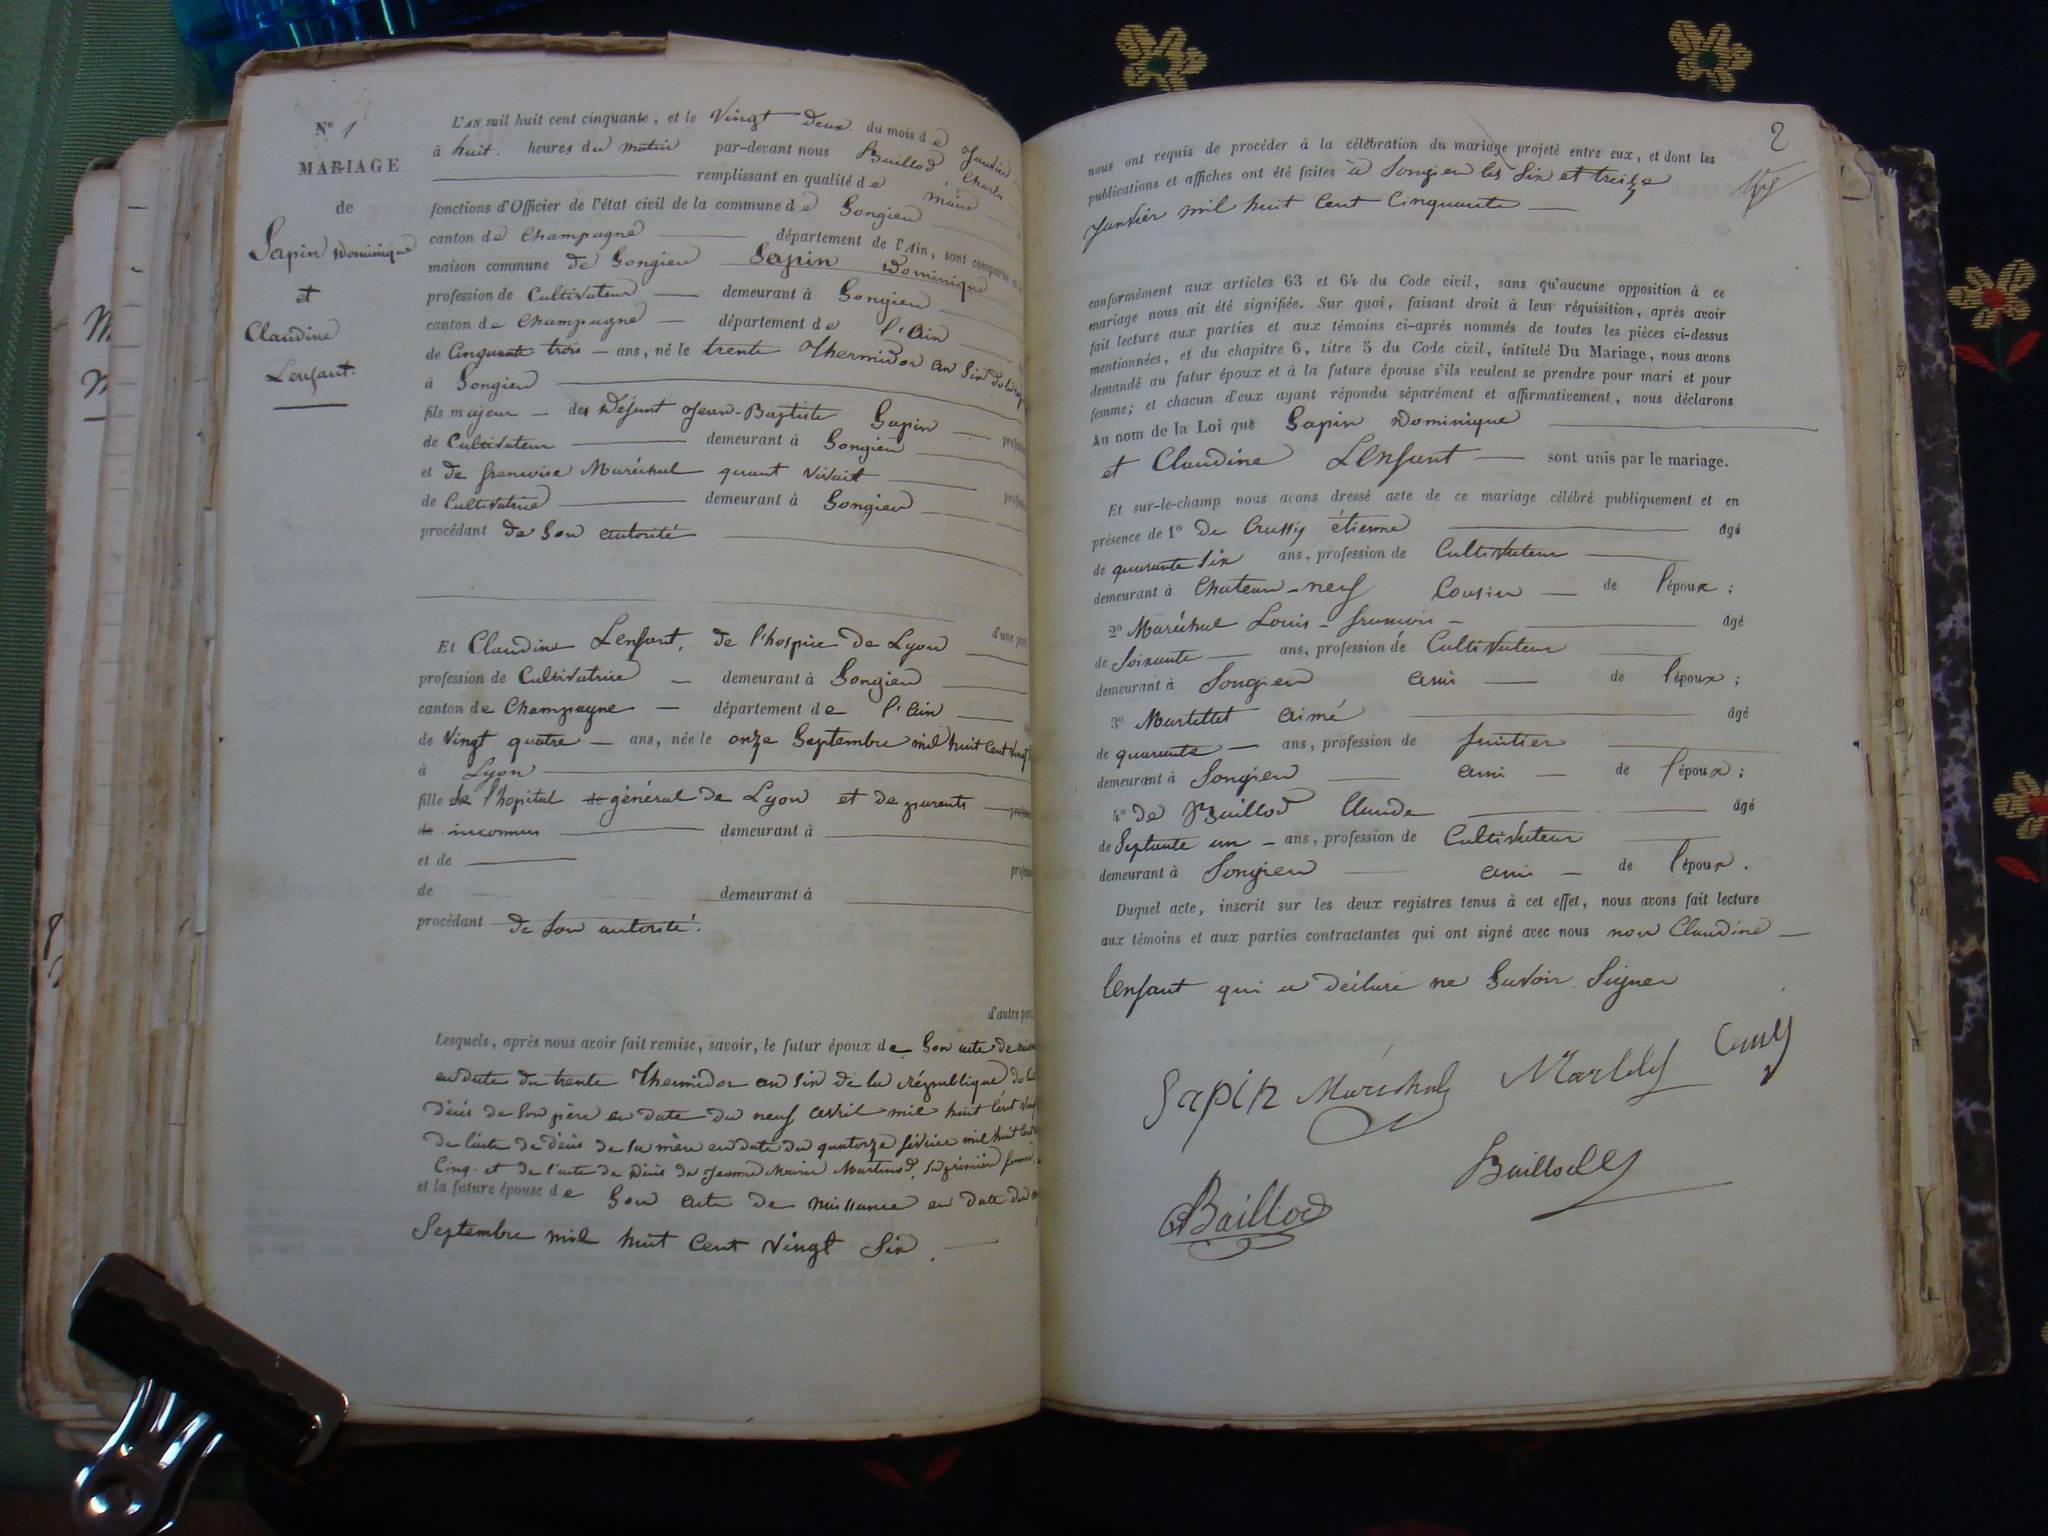 Nº 1
MARIAGE
de
Sapin Dominique
et
Claudine
Lenfant.
L'AN mil huit cent cinquante, et le Vingt Deux du mois de Janvier
à huit heures du matin par-devant nous Baillod Charles
remplissant en qualité de maire
fonctions d'Officier de l'état civil de la commune de Songieu
canton de Champagne département de l'Ain, sont comparus
maison commune de Songieu Sapin Dominique
profession de Cultivateur demeurant à Songieu
canton de Champagne département de l'ain
de Cinquante trois ans, né le trente Thermidor an Six
à Songieu
fils majeur des Défunt Jean-Baptiste Sapin
de Cultivateur demeurant à Songieu
et de francoise Maréchal quant vivait
de Cultivatrice demeurant à Songieu
procédant de Son autorité
d'une part,
Et Claudine Lenfant, de l'hospice de Lyon
profession de Cultivatrice demeurant à Songieu
canton de Champagne département de l'ain
de Vingt quatre ans, née le onze Septembre mil huit Cent Vingt
à Lyon
fille de l'hopital de général de Lyon et de parents
de inconnus demeurant à
et de
de demeurant à
procédant de Son autorité.
d'autre part,
Lesquels, après nous avoir fait remise, savoir, le futur époux de Son acte de
en date du trente Thermidor an Six de la république
décès de Son père en date du neuf avril mil huit Cent
de l'acte de décès de Sa mère en date du quatorze février mil huit Cent
Cinq et de l'acte de Décès de Jeanne Marie Martinod, Sa première femme
et la future épouse de Son acte de naissance en date du
Septembre mil huit Cent Vingt Six.
2
nous ont requis de procéder à la célébration du mariage projeté entre eux, et dont les
publications et affiches ont été faites à Songieu les Six et treize
Janvier mil huit Cent Cinquante
conformément aux articles 63 et 64 du Code civil, sans qu'aucune opposition à ce
mariage nous ait été signifiée. Sur quoi, faisant droit à leur réquisition, après avoir
fait lecture aux parties et aux témoins ci-après nommés de toutes les pièces ci-dessus
mentionnées, et du chapitre 6, titre 5 du Code civil, intitulé Du Mariage, nous avons
demandé au futur époux et à la future épouse s'ils veulent se prendre pour mari et pour
femme; et chacun d'eux ayant répondu séparément et affirmativement, nous déclarons
Au nom de la Loi que Sapin Dominique
et Claudine Lenfant sont unis par le mariage.
Et sur-le-champ nous avons dressé acte de ce mariage célébré publiquement et en
présence de 1º De Crussy étienne âgé
de quarante Six ans, profession de Cultivateur
demeurant à Chateau-neuf Cousin de l'époux;
2º Maréchal Louis-francois âgé
de Soixante ans, profession de Cultivateur
demeurant à Songieu ami de l'époux;
3º Martellet aimé âgé
de quarante ans, profession de
demeurant à Songieu ami de l'époux;
4º de Baillod Claude âgé
de Septante un ans, profession de Cultivateur
demeurant à Songieu ami de l'époux.
Duquel acte, inscrit sur les deux registres tenus à cet effet, nous avons fait lecture
aux témoins et aux parties contractantes qui ont signé avec nous non Claudine
lenfant qui a déclaré ne Savoir Signer
Sapin Maréchal
Baillod
Baillod